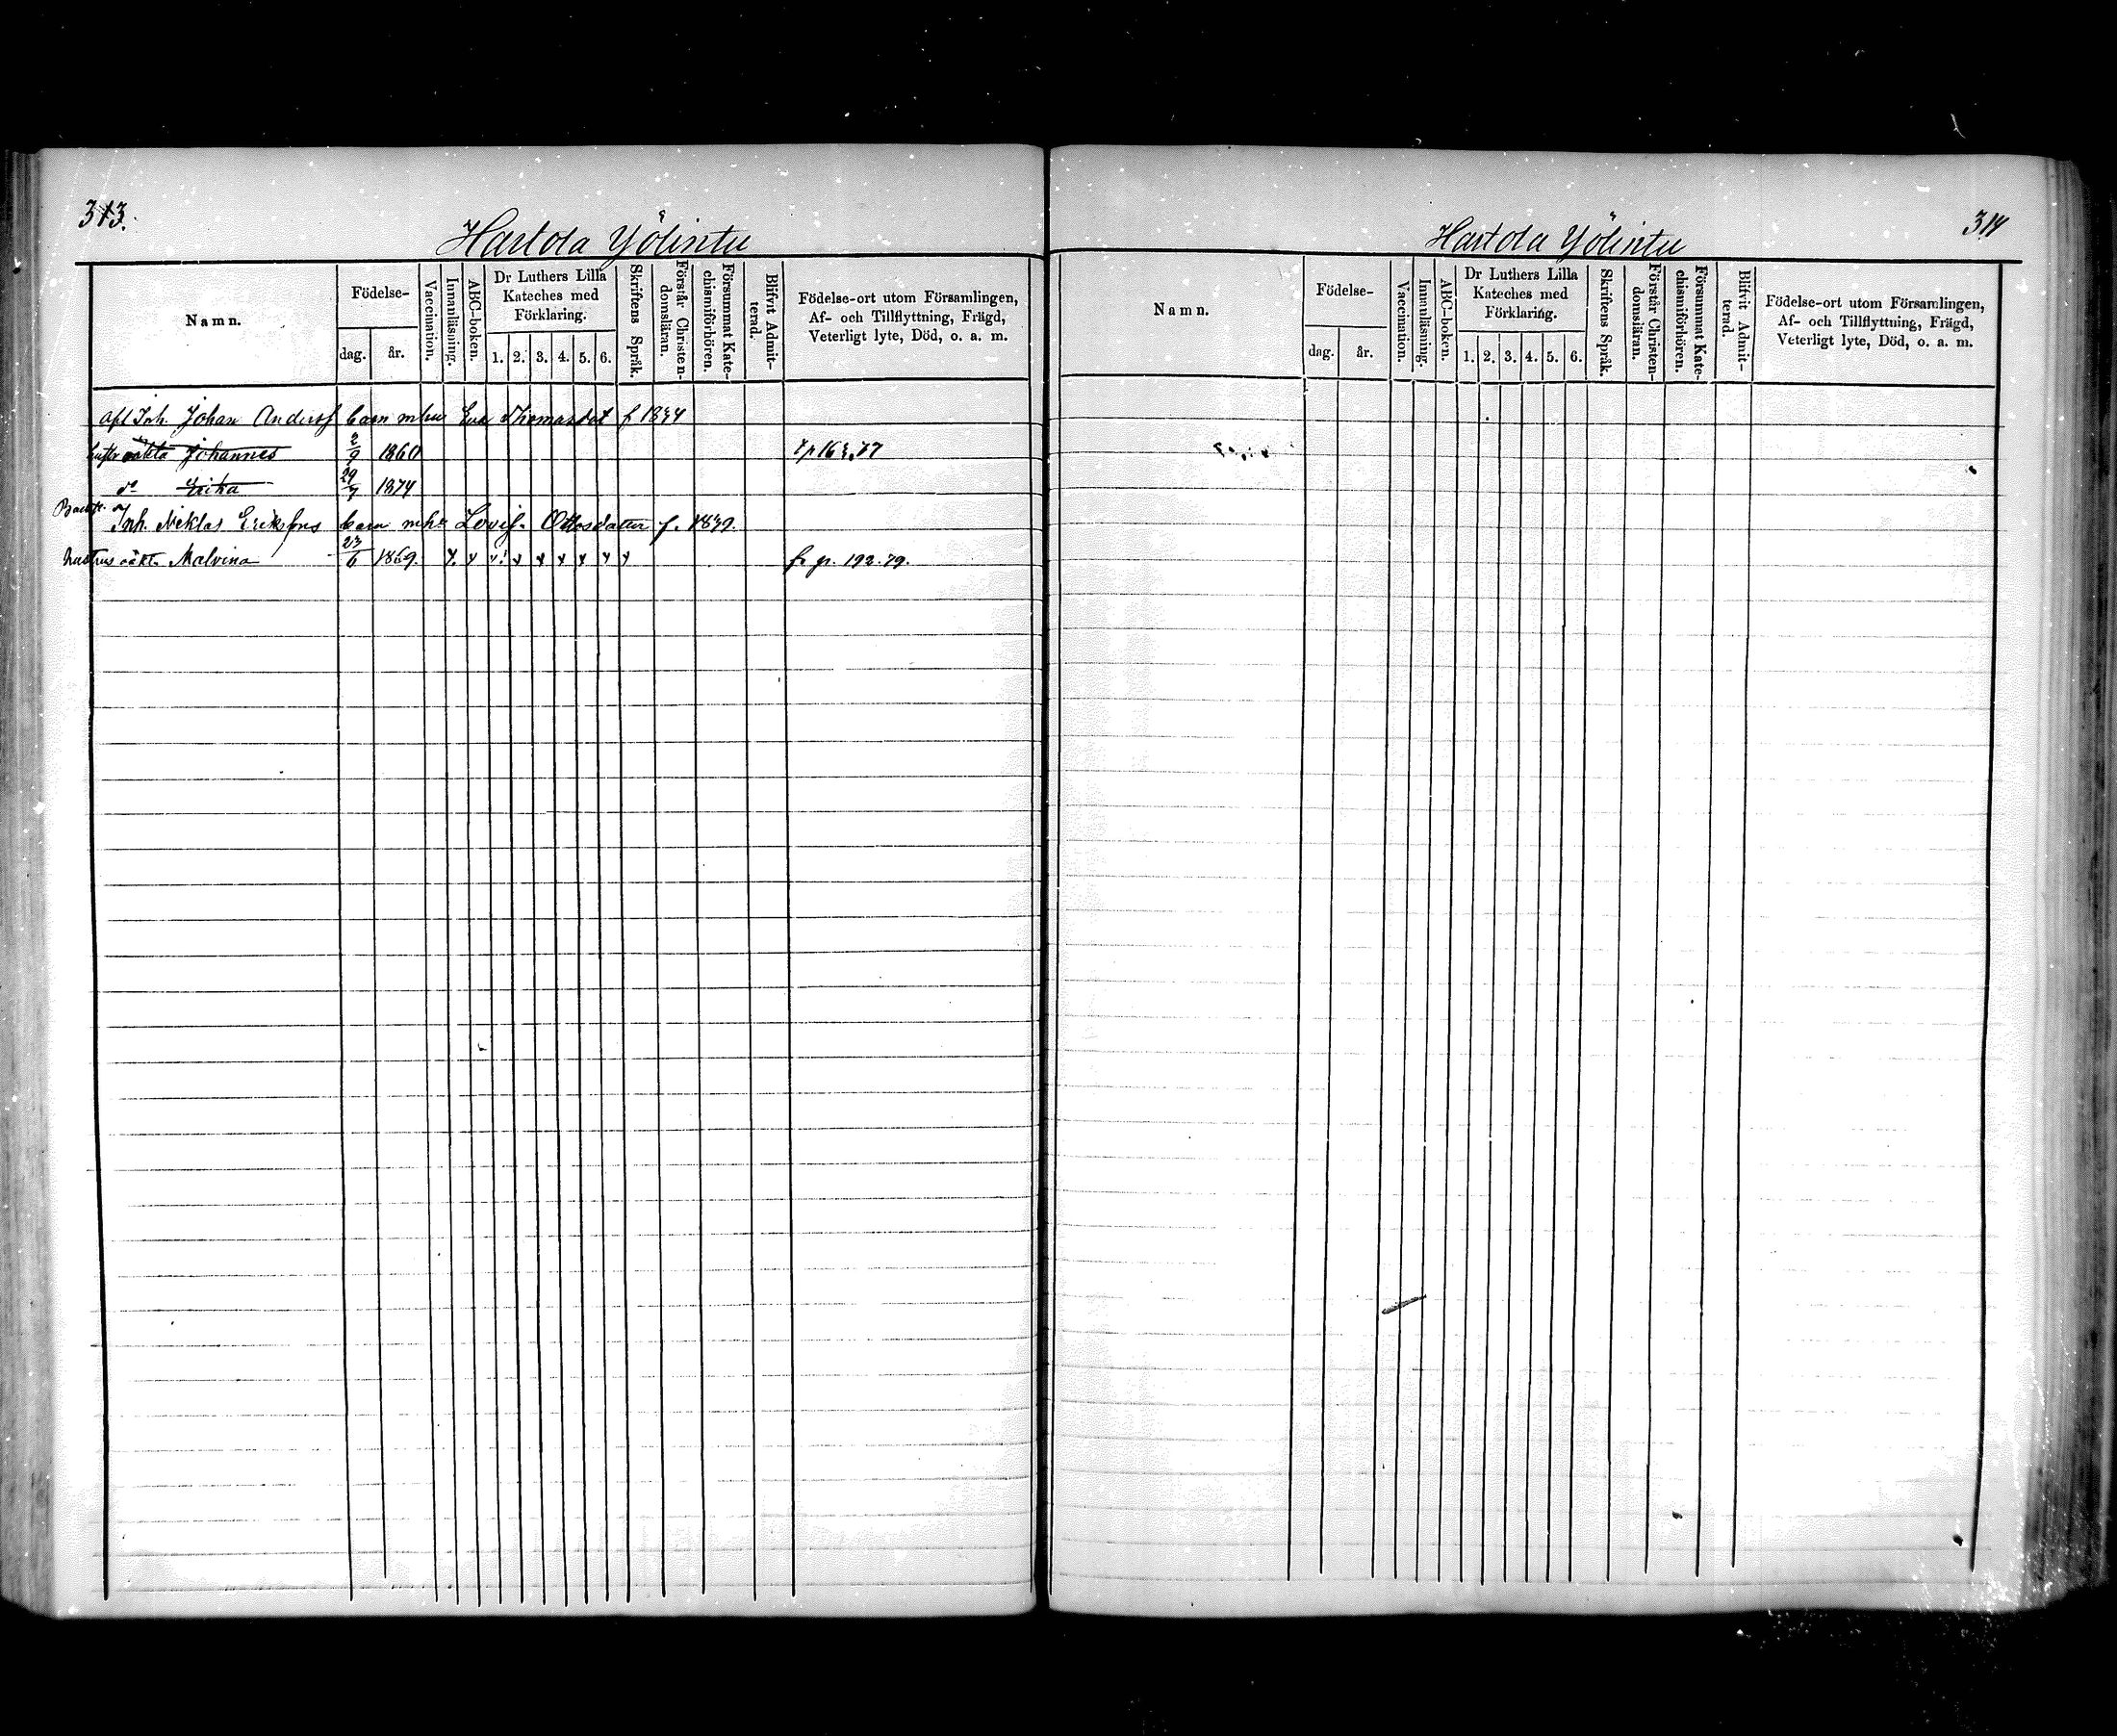 313.
Hartola Yölintu
Namn.
Födelse-
dag.
år.
Vaccination.
Innanläsning.
ABC-boken.
Dr Luthers Lilla
Kateches med
Förklaring.
1. 2. 3. 4. 5. 6.
Skriftens Språk.
Förstår Christen-
domsläran.
Försummat Kate-
chismiförhören.
Blifvit Admit-
terad.
Födelse-ort utom Församlingen,
Af- och Tillflyttning, Frägd,
Veterligt lyte, Död, o. a. m.
Inh. Johan Anderss barn mhu Eva Thomasdot f 1834
oäkta Johannes 2/9 1860
do Erika 29/7 1874
Inh. Niklas Erikssons barn mhu Lovis. Ottosdatter f. 1839.
oäkt. Malvina 23/6 1869. fr p. 192.79.
314
Hartola Yölintu
Namn.
Födelse-
dag.
år.
Vaccination.
Innanläsning.
ABC-boken.
Dr Luthers Lilla
Kateches med
Förklaring.
1. 2. 3. 4. 5. 6.
Skriftens Språk.
Förstår Christen-
domsläran.
Försummat Kate-
chismiförhören.
Blifvit Admit-
terad.
Födelse-ort utom Församlingen,
Af- och Tillflyttning, Frägd,
Veterligt lyte, Död, o. a. m.